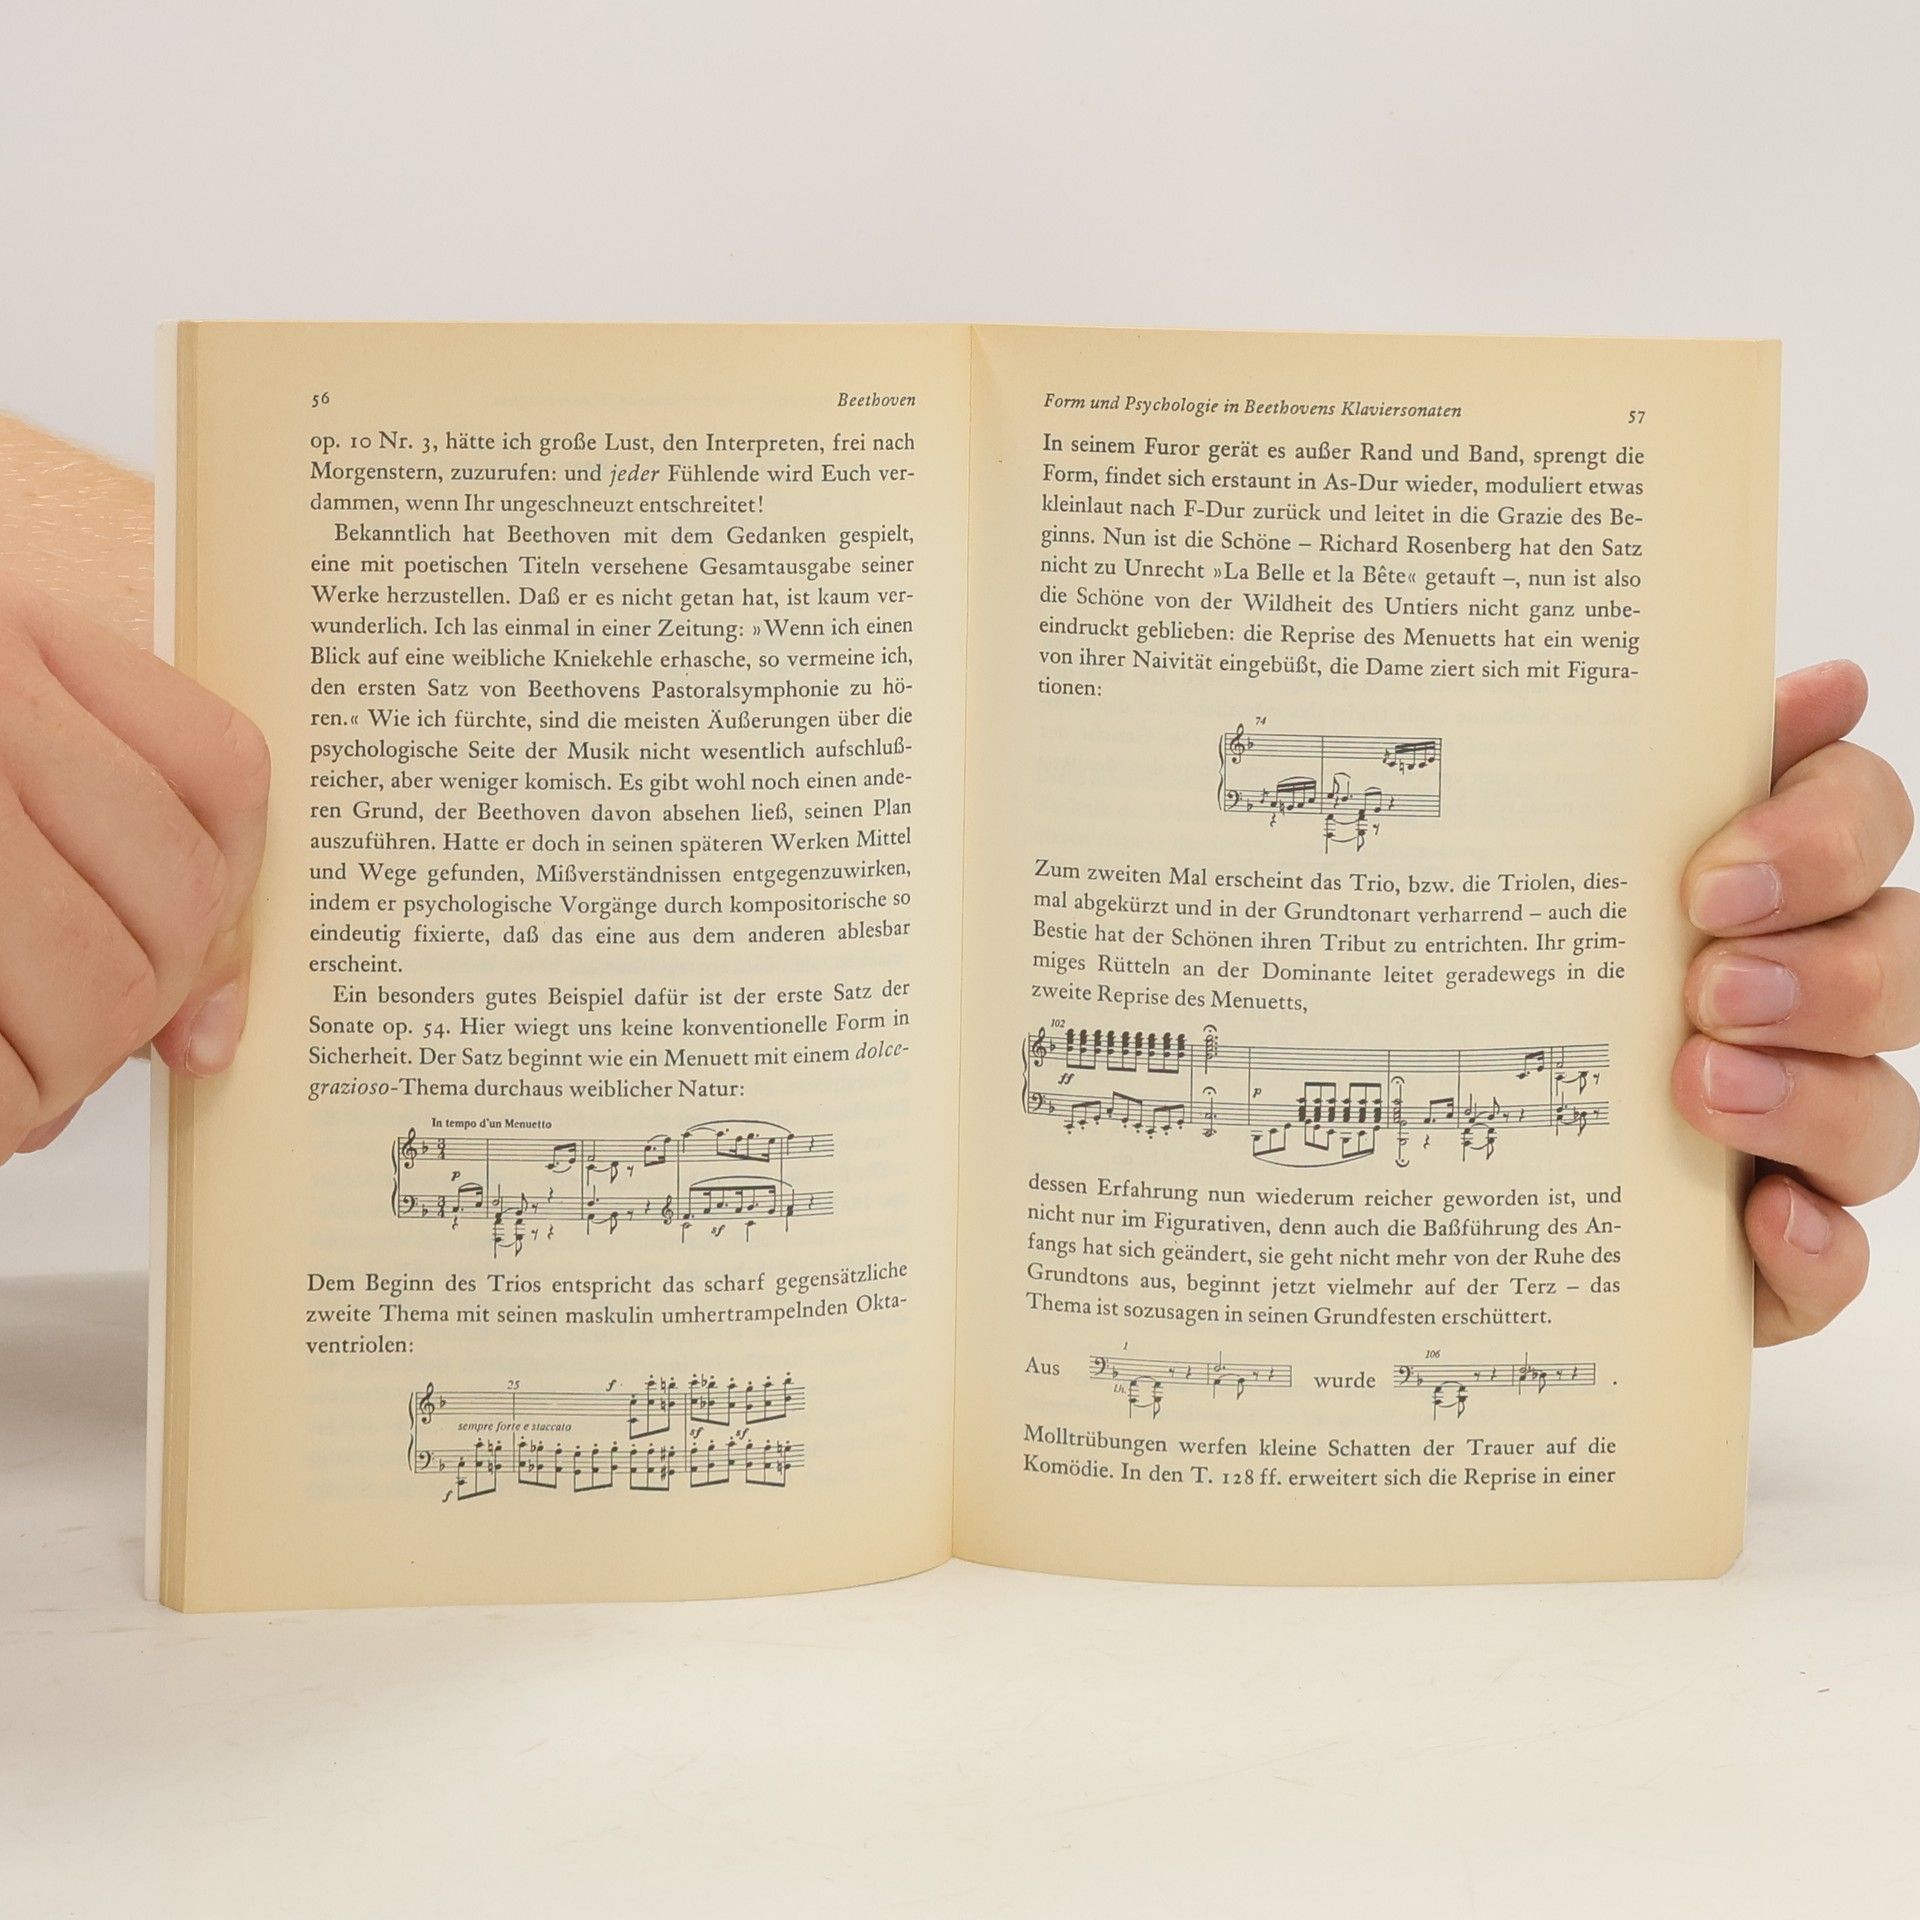 56
Beethoven
op. 10 Nr. 3, hätte ich große Lust, den Interpreten, frei nach
Morgenstern, zuzurufen: und jeder Fühlende wird Euch ver-
dammen, wenn Ihr ungeschneuzt entschreitet!
Bekanntlich hat Beethoven mit dem Gedanken gespielt,
eine mit poetischen Titeln versehene Gesamtausgabe seiner
Werke herzustellen. Daß er es nicht getan hat, ist kaum ver-
wunderlich. Ich las einmal in einer Zeitung: »Wenn ich einen
Blick auf eine weibliche Kniekehle erhasche, so vermeine ich,
den ersten Satz von Beethovens Pastoralsymphonie zu hö-
ren.« Wie ich fürchte, sind die meisten Äußerungen über die
psychologische Seite der Musik nicht wesentlich aufschluß-
reicher, aber weniger komisch. Es gibt wohl noch einen ande-
ren Grund, der Beethoven davon absehen ließ, seinen Plan
auszuführen. Hatte er doch in seinen späteren Werken Mittel
und Wege gefunden, Mißverständnissen entgegenzuwirken,
indem er psychologische Vorgänge durch kompositorische so
eindeutig fixierte, daß das eine aus dem anderen ablesbar
erscheint.
Ein besonders gutes Beispiel dafür ist der erste Satz der
Sonate op. 54. Hier wiegt uns keine konventionelle Form in
Sicherheit. Der Satz beginnt wie ein Menuett mit einem dolce-
grazioso-Thema durchaus weiblicher Natur:
In tempo d'un Menuetto
p
sf
Dem Beginn des Trios entspricht das scharf gegensätzliche
zweite Thema mit seinen maskulin umhertrampelnden Okta-
ventriolen:
25
f
sempre forte e staccato
sf sf
f
Form und Psychologie in Beethovens Klaviersonaten
57
In seinem Furor gerät es außer Rand und Band, sprengt die
Form, findet sich erstaunt in As-Dur wieder, moduliert etwas
kleinlaut nach F-Dur zurück und leitet in die Grazie des Be-
ginns. Nun ist die Schöne – Richard Rosenberg hat den Satz
nicht zu Unrecht »La Belle et la Bête« getauft –, nun ist also
die Schöne von der Wildheit des Untiers nicht ganz unbe-
eindruckt geblieben: die Reprise des Menuetts hat ein wenig
von ihrer Naivität eingebüßt, die Dame ziert sich mit Figura-
tionen:
74
Zum zweiten Mal erscheint das Trio, bzw. die Triolen, dies-
mal abgekürzt und in der Grundtonart verharrend – auch die
Bestie hat der Schönen ihren Tribut zu entrichten. Ihr grim-
miges Rütteln an der Dominante leitet geradewegs in die
zweite Reprise des Menuetts,
102
ff
p
dessen Erfahrung nun wiederum reicher geworden ist, und
nicht nur im Figurativen, denn auch die Baßführung des An-
fangs hat sich geändert, sie geht nicht mehr von der Ruhe des
Grundtons aus, beginnt jetzt vielmehr auf der Terz – das
Thema ist sozusagen in seinen Grundfesten erschüttert.
1
106
Aus wurde .
l.h.
Molltrübungen werfen kleine Schatten der Trauer auf die
Komödie. In den T. 128 ff. erweitert sich die Reprise in einer